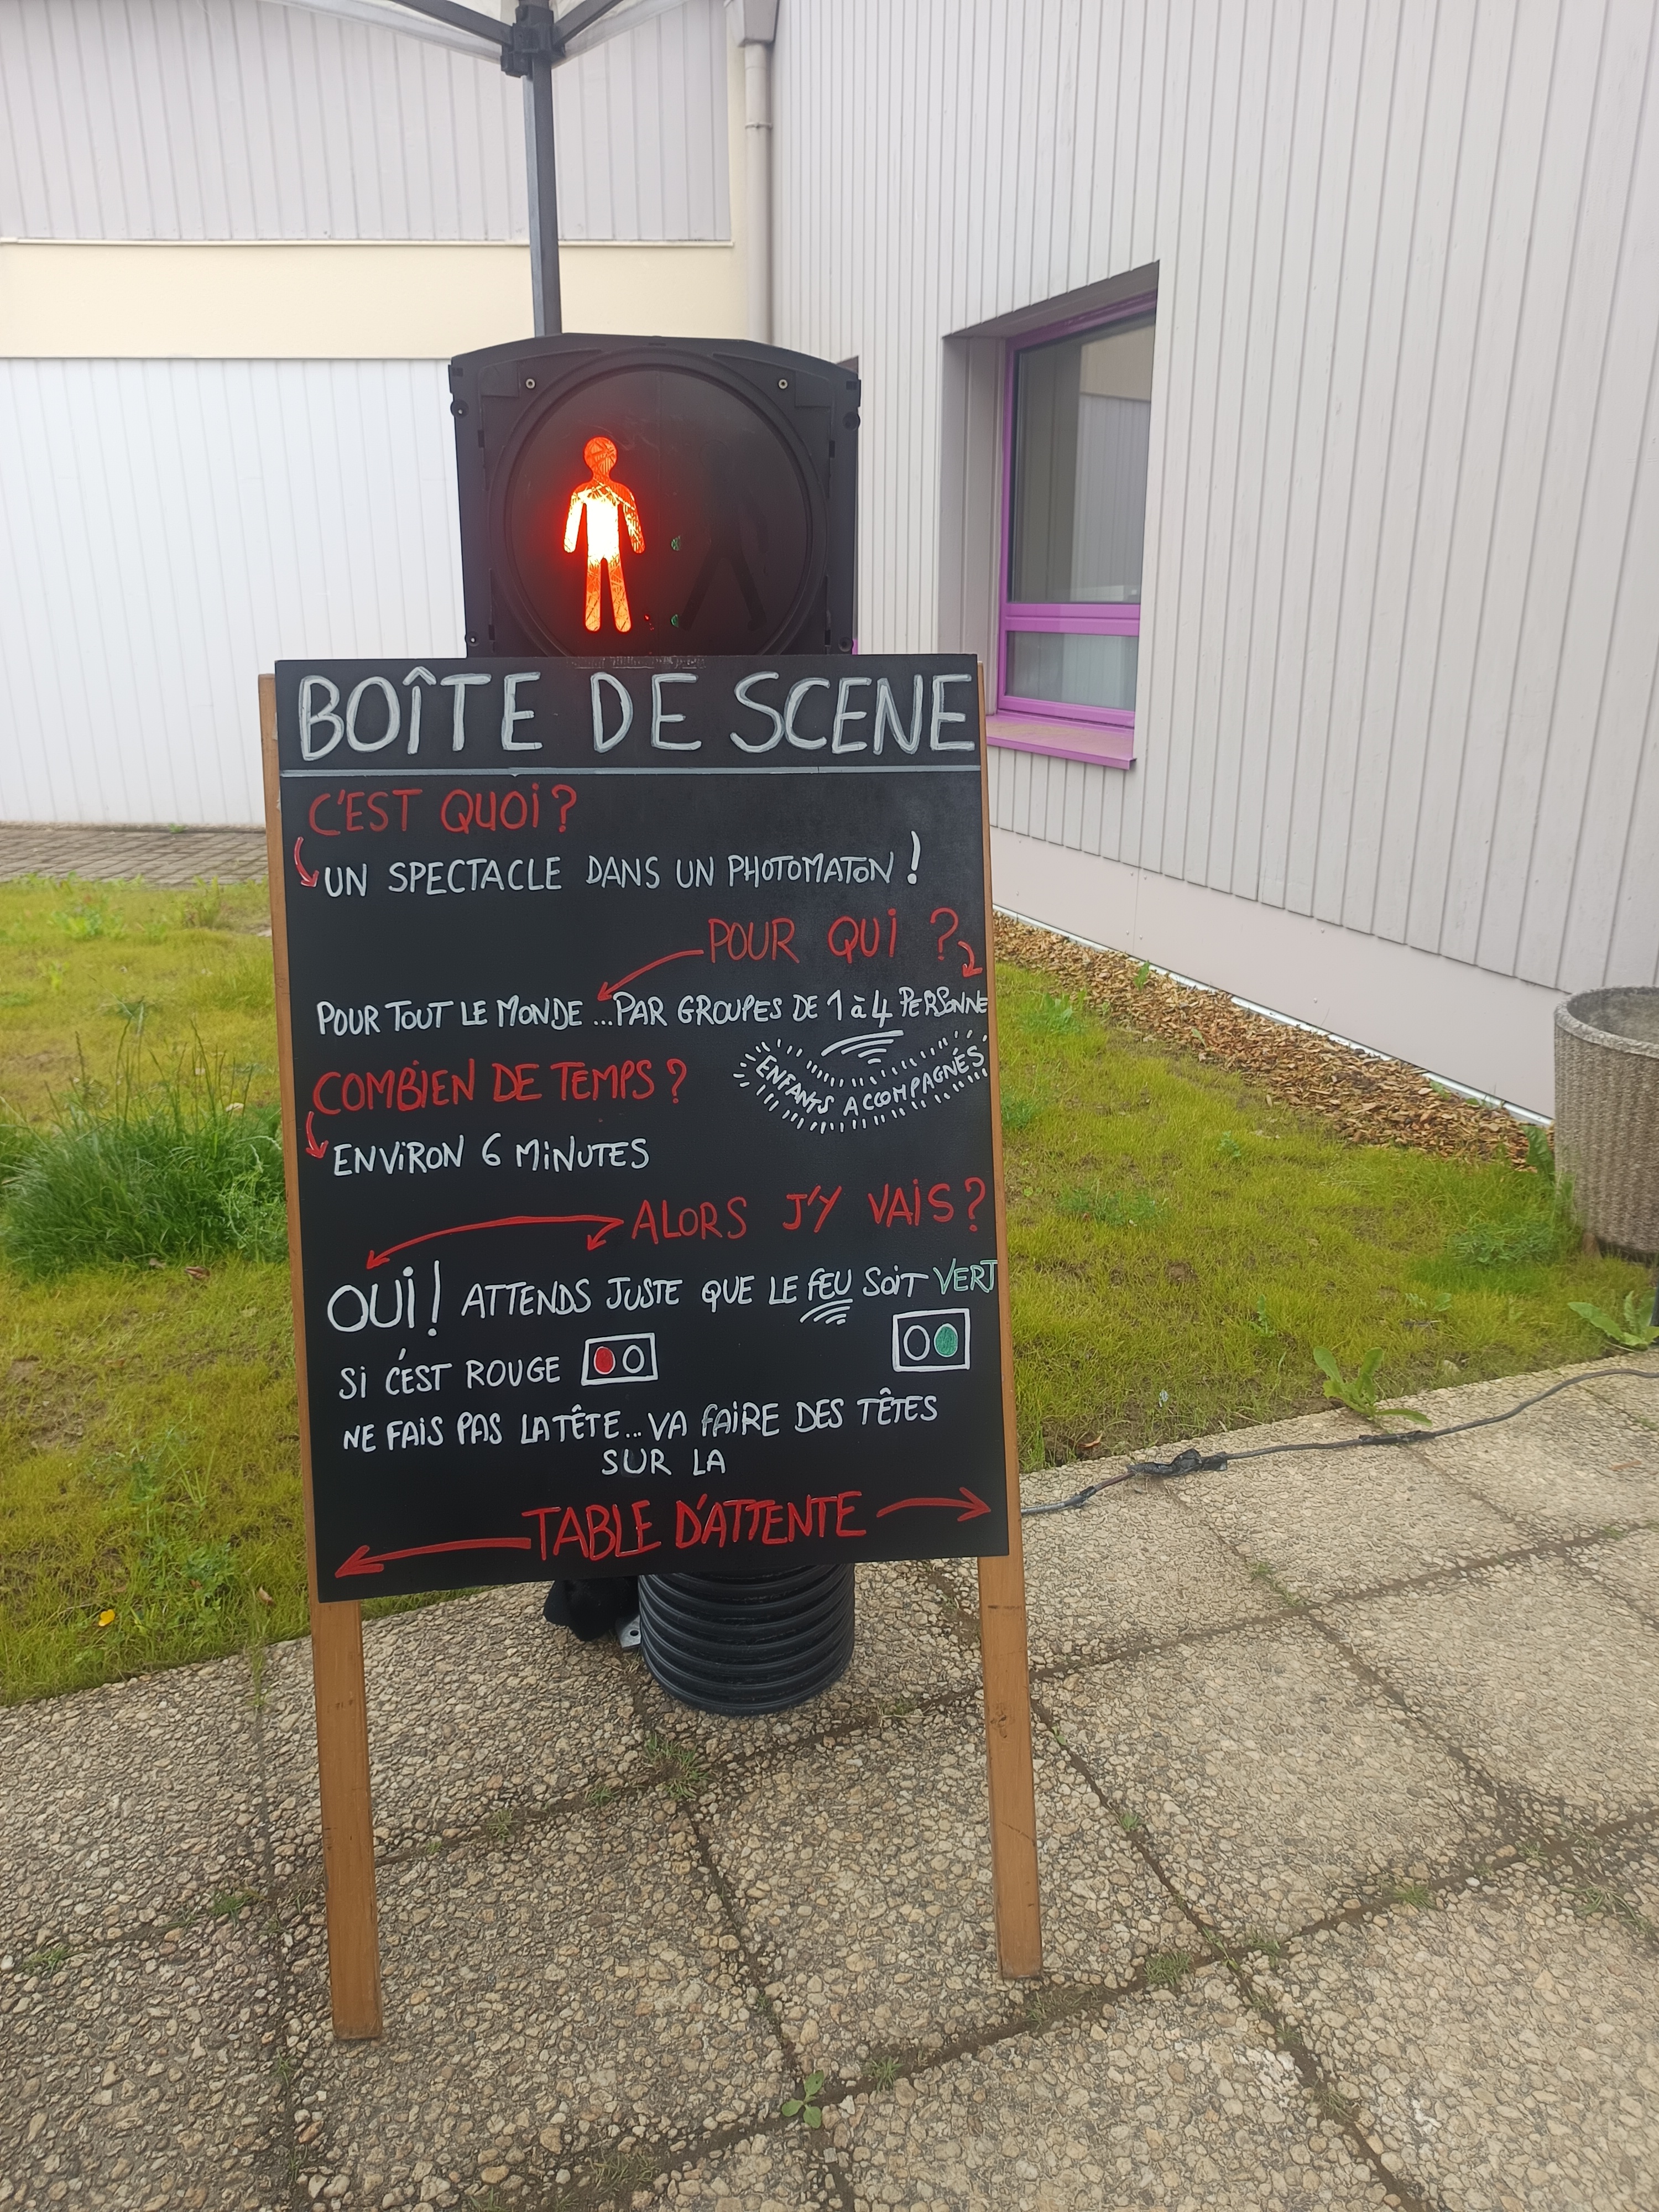 BOÎTE DE SCENE
C'EST QUOI ?
UN SPECTACLE DANS UN PHOTOMATON !
POUR QUI ?
POUR TOUT LE MONDE ... PAR GROUPES DE 1 à 4 PERSONNE
ENFANTS ACCOMPAGNÉS
COMBIEN DE TEMPS ?
ENVIRON 6 MINUTES
ALORS J'Y VAIS ?
OUI ! ATTENDS JUSTE QUE LE FEU SOIT VERT
SI C'EST ROUGE
NE FAIS PAS LA TÊTE... VA FAIRE DES TÊTES
SUR LA
TABLE D'ATTENTE